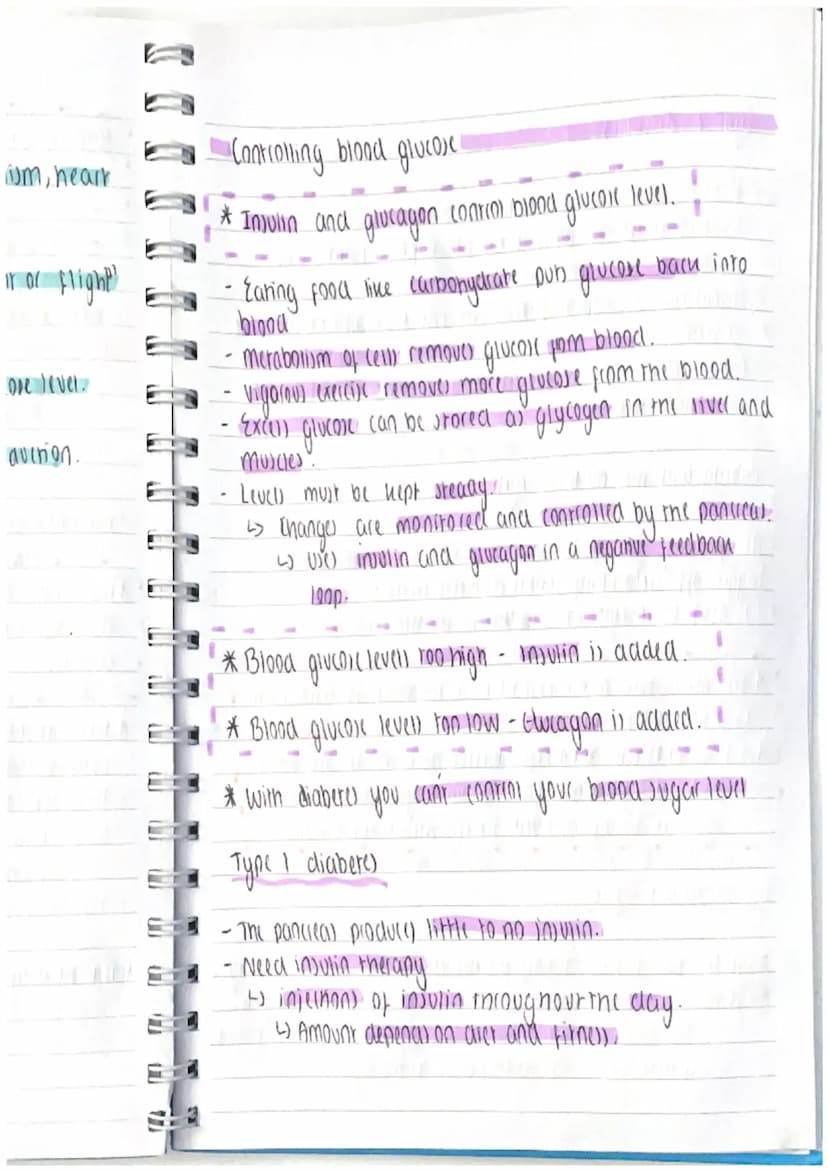 ium, heart
r or flight"
ose level.
auction.
Controlling blood glucose
* Insulin and glucagon control blood glucose level.
- Eating food like carbohydrate puts glucose back into
blood
- metabolism of cells removes glucose from blood.
- vigorous exercise removes more glucose from the blood.
- Excess glucose can be stored as glycogen in the liver and
muscles.
- Levels must be kept steady.
↳ Changes are monitored and controlled by the pancreas.
↳ Uses insulin and glucagon in a negative feedback
loop.
* Blood glucose levels too high - insulin is added.
* Blood glucose levels too low - Glucagon is added.
* With diabetes you can't control your blood sugar level
Type 1 diabetes
- The pancreas produces little to no insulin.
- Need insulin therapy
↳ injections of insulin throughout the day.
↳ Amount depends on diet and fitness.